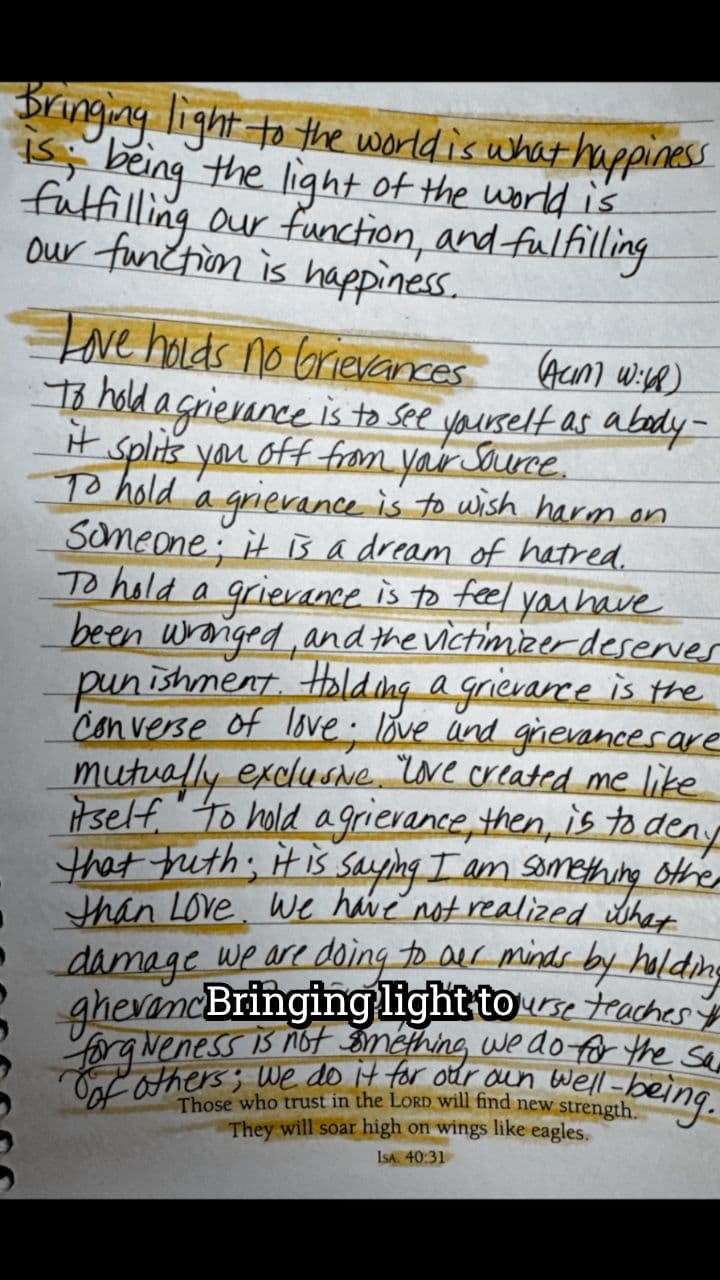 Bringing light to the world is what happiness
is; being the light of the world is
fulfilling our function, and fulfilling
our function is happiness.
Love holds no Grievances (ACIM W:68)
To hold a grievance is to see yourself as a body-
it splits you off from your Source.
To hold a grievance is to wish harm on
someone; it is a dream of hatred.
To hold a grievance is to feel you have
been wronged, and the victimizer deserves
punishment. Holding a grievance is the
converse of love; love and grievances are
mutually exclusive. "Love created me like
itself." To hold a grievance, then, is to deny
that truth; it is saying I am something other
than Love. We have not realized what
damage we are doing to our minds by holding
Bringing light to
teaches
forgiveness is not something we do for the
of others; we do it for our own well-being.
Those who trust in the LORD will find new strength.
They will soar high on wings like eagles.
ISA. 40:31